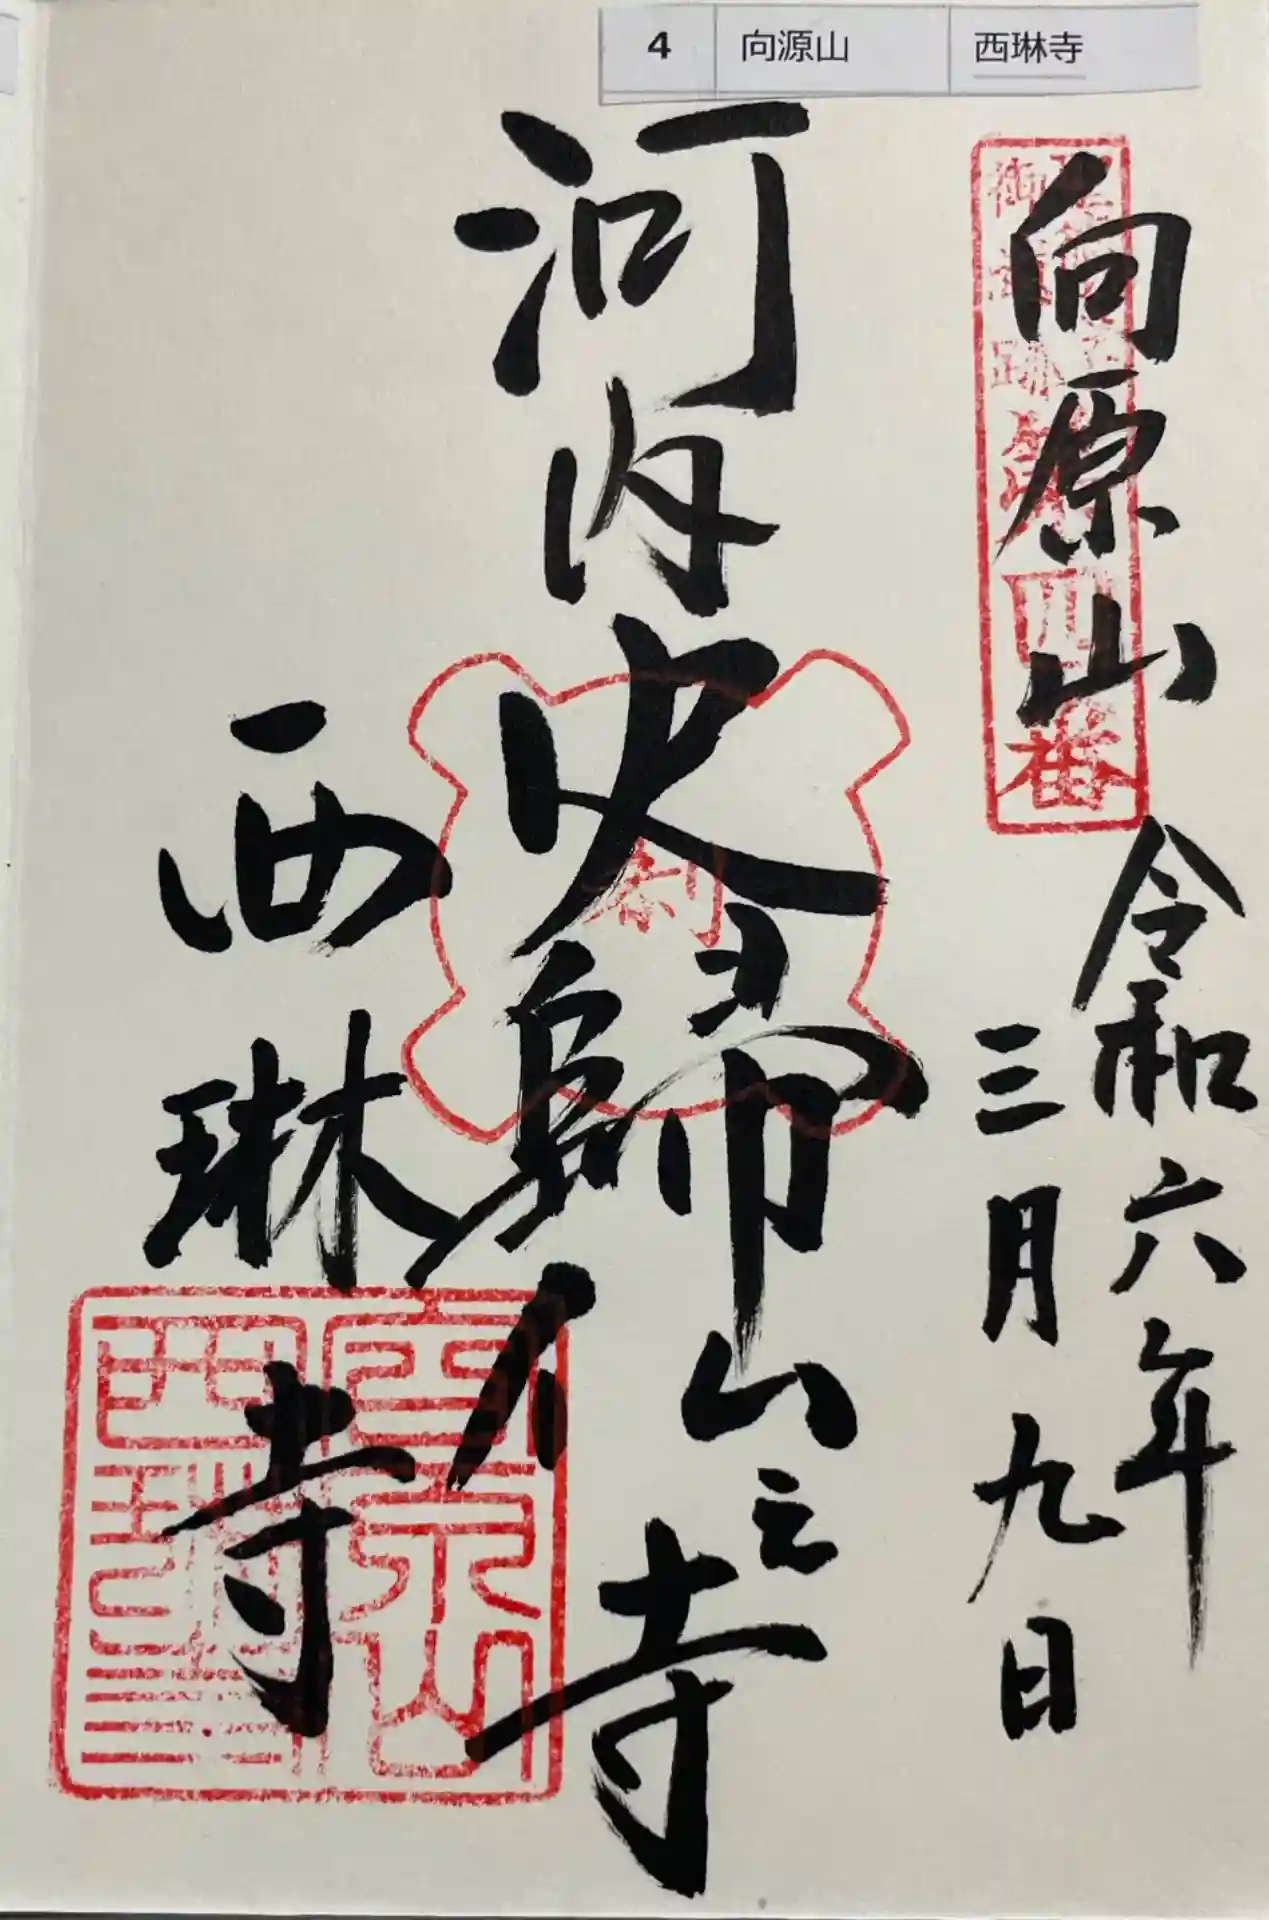 4 向源山 西琳寺
向原山
第四番
令和六年
三月九日
河内史歸仏之寺
西琳寺